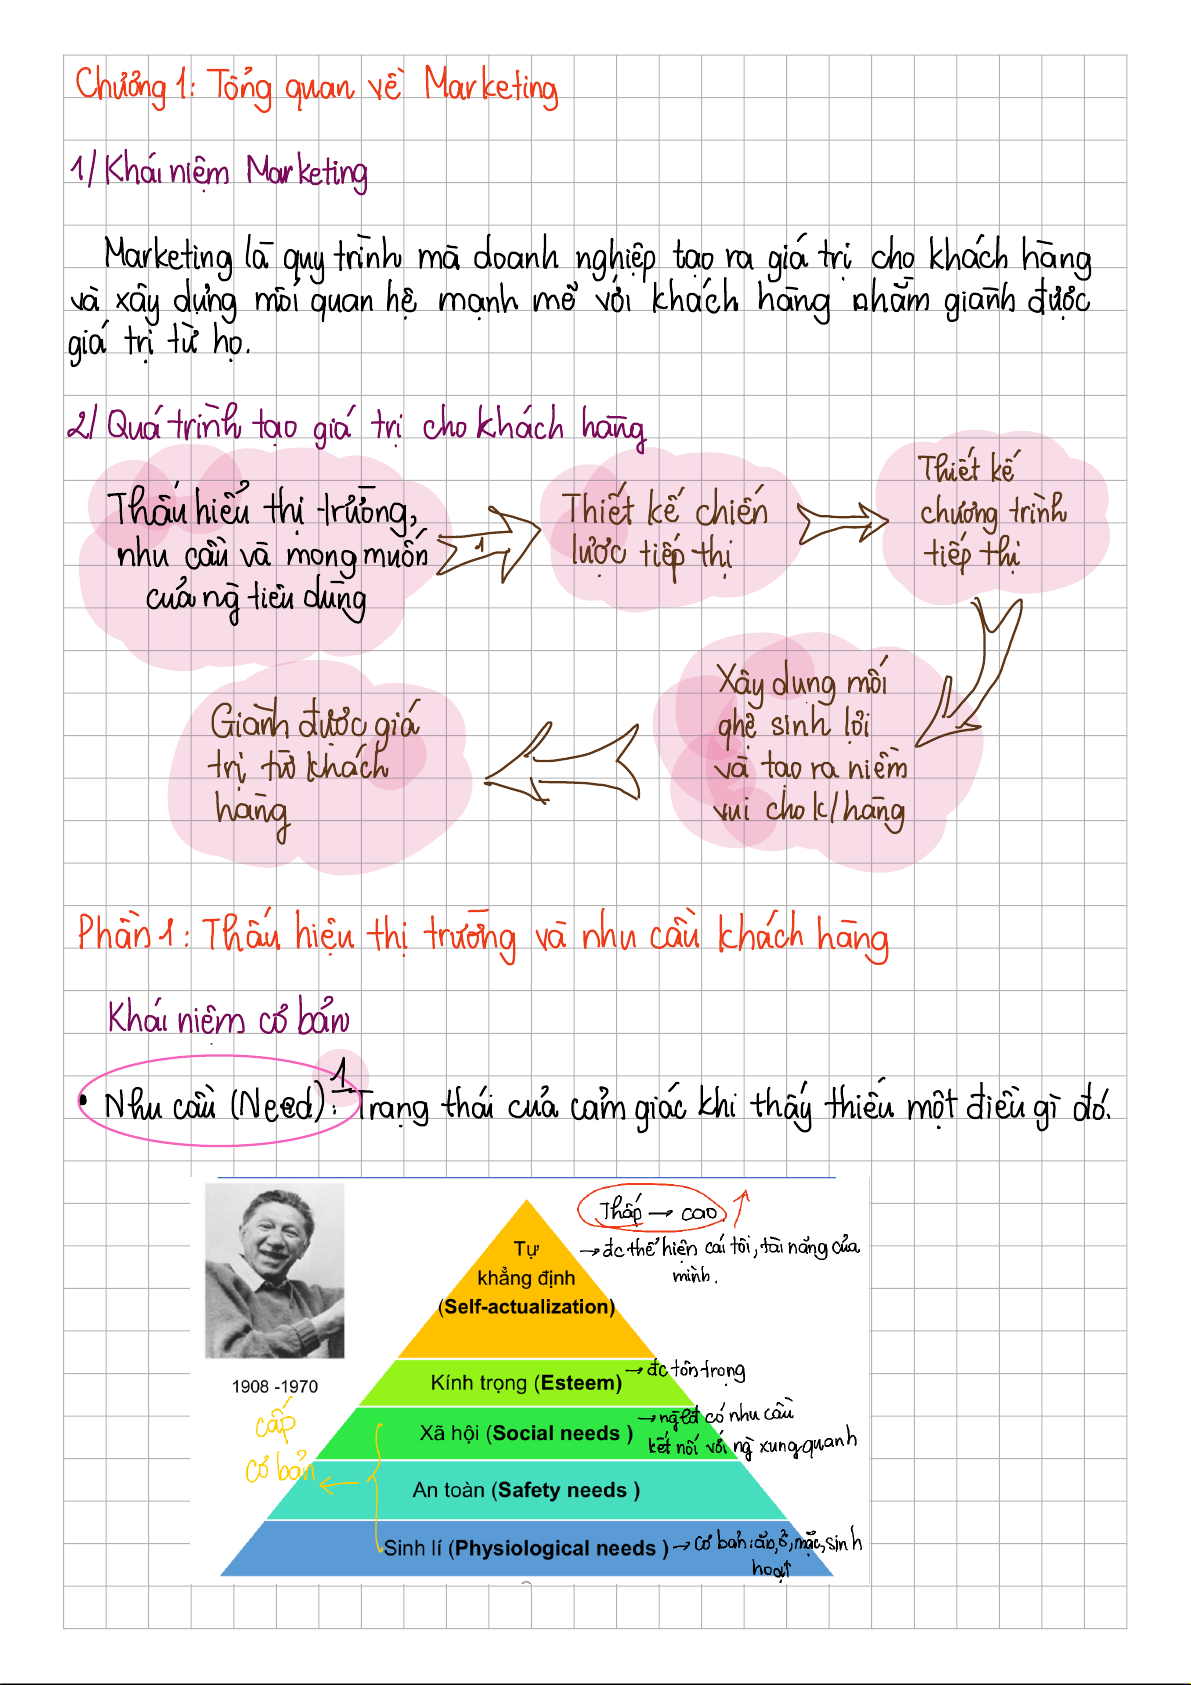 Chương 1: Tổng quan về Marketing
1/ Khái niệm Marketing
Marketing là quy trình mà doanh nghiệp tạo ra giá trị cho khách hàng
và xây dựng mối quan hệ mạnh mẽ với khách hàng nhằm giành được
giá trị từ họ.
2/ Quá trình tạo giá trị cho khách hàng
Thấu hiểu thị trường,
nhu cầu và mong muốn
của ng̀ tiêu dùng
1
Thiết kế chiến
lược tiếp thị
Thiết kế
chương trình
tiếp thị
Xây dụng mối
qhệ sinh lời
và tạo ra niềm
vui cho k/hàng
Giành được giá
trị từ khách
hàng
Phần 1: Thấu hiệu thị trường và nhu cầu khách hàng
Khái niệm cơ bản
1
• Nhu cầu (Need): Trạng thái của cảm giác khi thấy thiếu một điều gì đó.
Thấp → cao
Tự
khẳng định
(Self-actualization)
→ đc thể hiện cái tôi, tài năng của
mình.
1908 -1970
Kính trọng (Esteem)
→ đc tôn trọng
cấp
cơ bản
Xã hội (Social needs )
→ có nhu cầu
kết nối với ng̀ xung quanh
An toàn (Safety needs )
Sinh lí (Physiological needs )
→ Cơ bản: ăn, ở, mặc, sinh
hoạt